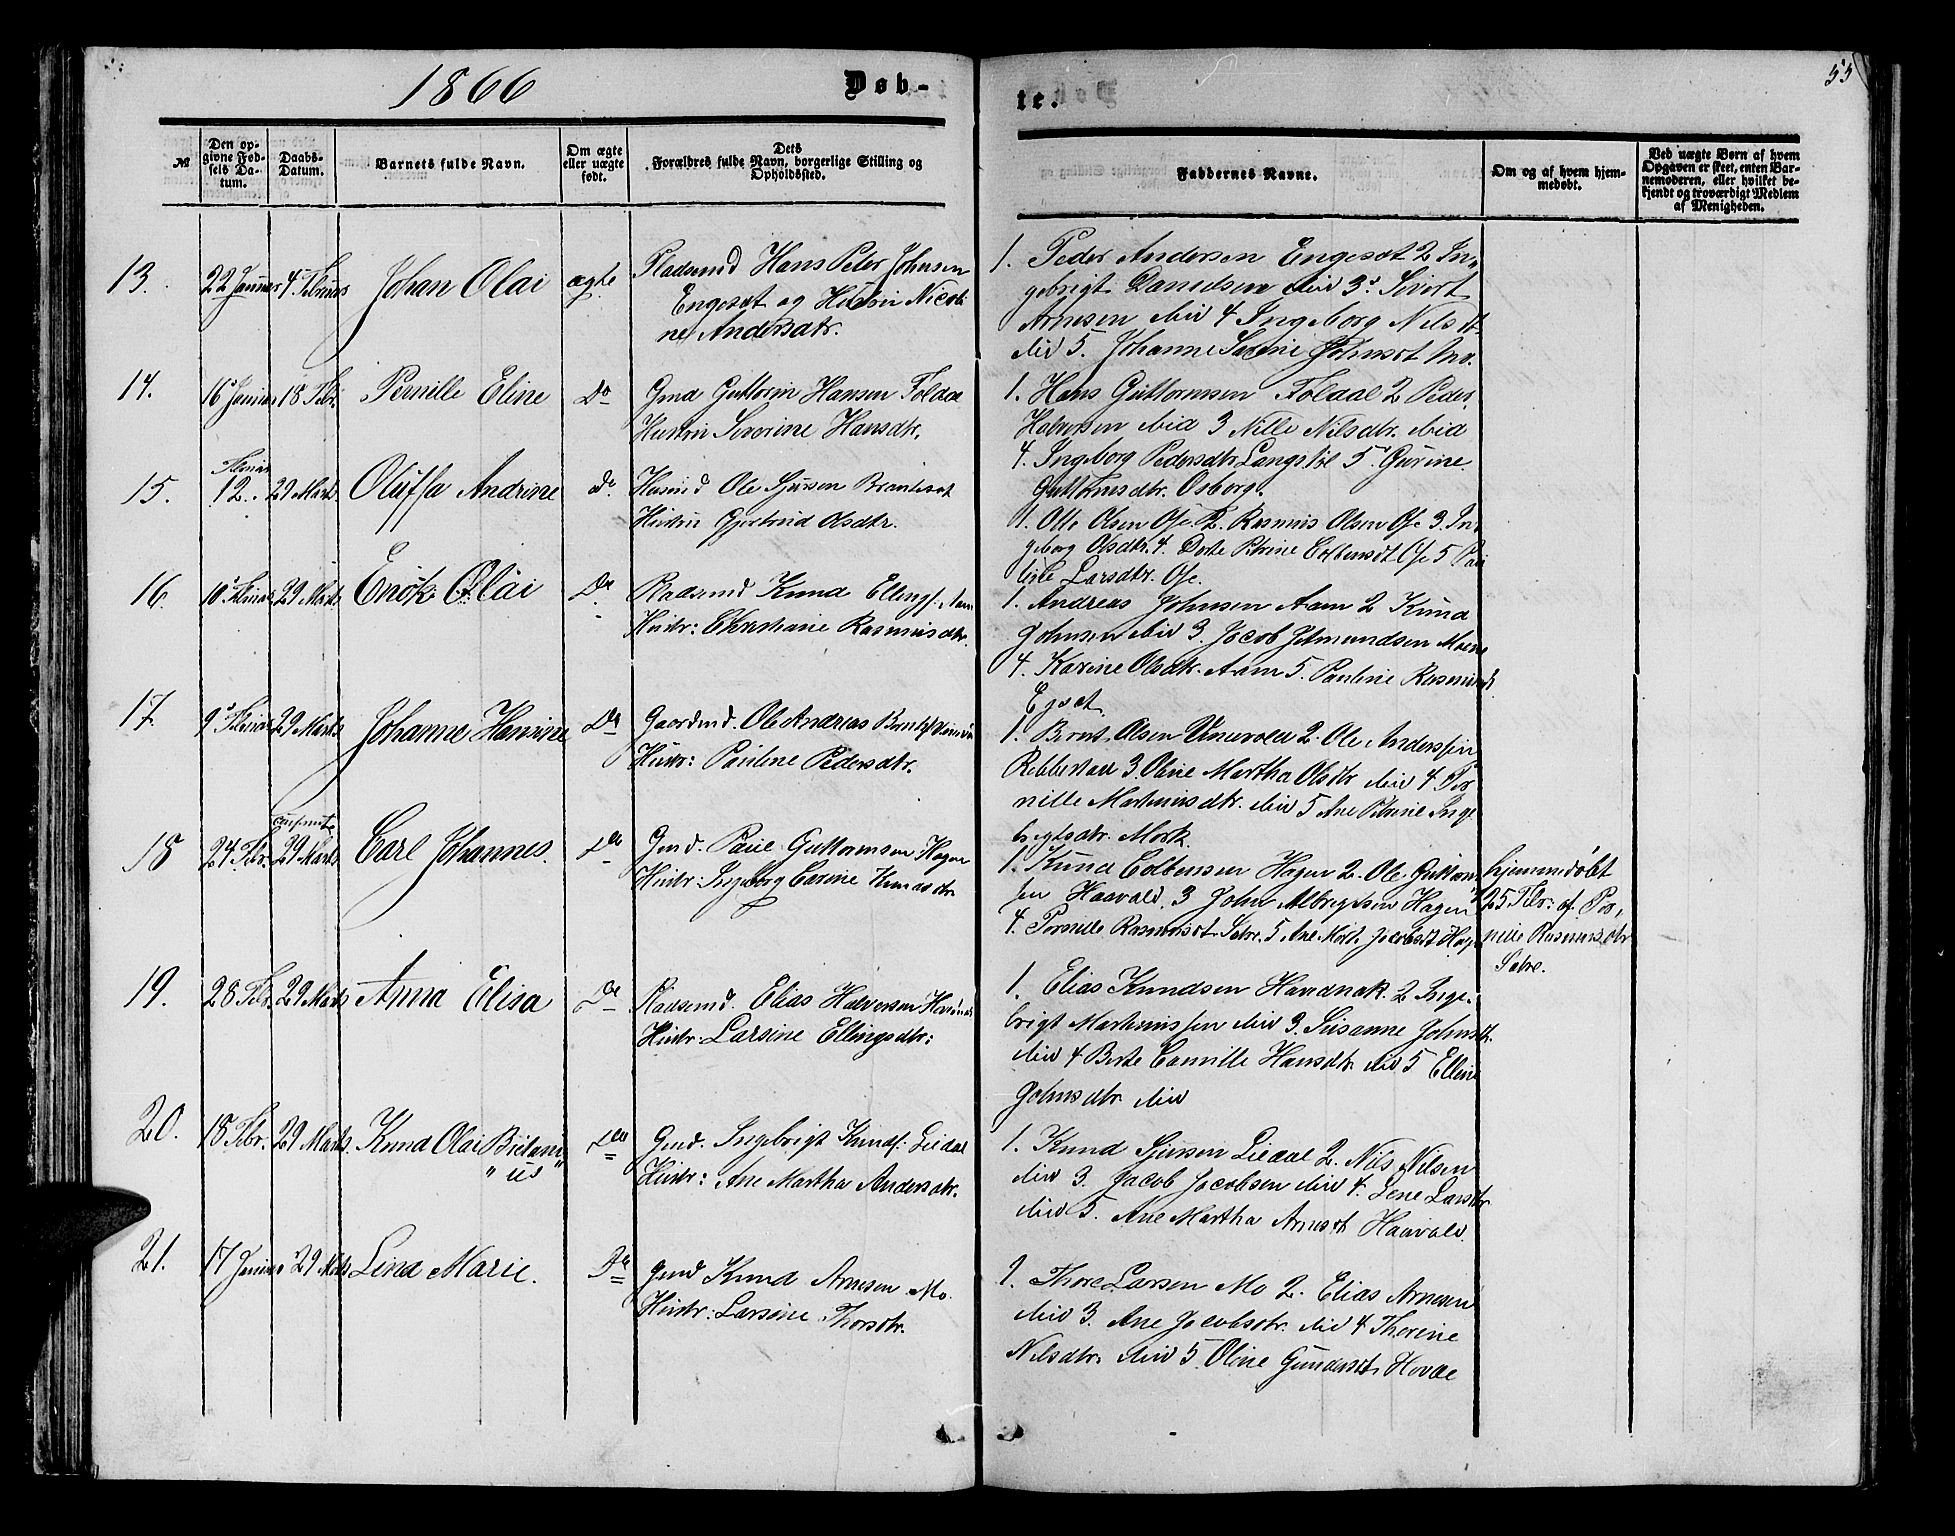 1866
Døb-
te.
55
№
Den op-
givne Fød-
sels Da-
tum.
Daabs-
Datum.
Barnets fulde Navn.
Om ægte
eller uægte
født.
Dets
Forældres fulde Navn, borgerlige Stilling og
Opholdssted.
Faddernes Navne.
Om og af hvem hjem-
medøbt.
Ved uægte Børn af hvem
Opgaven er skeet, enten Bar-
nemoderen, eller hvilket be-
kjendt og troværdigt Medlem
af Menigheden.
13. 22 Januar 4 Februar Johan Olai ægte
Pladsmd Hans Peter Johnsen
Engeset og Hustru Nicoli
ne Andersdtr.
1. Peder Andersen Engeset 2 In
gebrigt Danielsen ibid 3 Sivert
Arnesen ibid 4 Ingeborg Nilsdt
ibid 5. Johanne Johnsdt
14. 16 Januar 18 Febr. Pernille Eline Do
Gmd Guttorm Hansen Foldal
Hustru Severine Hansdtr.
1. Hans Guttormsen Foldal 2 Peder
Halvorsen ibid 3 Nille Nilsdtr. ibid
4. Ingeborg Pedersdtr 5 Gurine
Guttormsdtr. Osborg.
15. Februar
12. 29 Marts Oluffa Andrine do
Husmd Ole Sjursen
Hustru Gjertrud Olsdtr.
1. Olsen Ose 2. Rasmus Olsen Ose 3. In
geborg Olsdtr. 4. Dorte Petrine Ose 5
Larsdtr. Ose.
16. 10 Februar 29 Marts Enok Olai Do
Pladsmd Knud Ellings: Aam
Hustr: Christiane Rasmusdtr.
1. Andreas Johnsen Aam 2 Knud
Johnsen ibid 3. Jacob Jetmundsen Moene
4. Karine Olsdtr. Aam 5. Pauline Rasmusd
Ejset.
17. 9 Februar 29 Marts Johanne Hanrine Do
Gaardmd. Ole Andreas
Hustr: Pauline Pedersdtr.
1. Bernt Olsen 2. Ole Anderssen
3. Oline Martha Olsdtr ibid 4 Per
nille Martinusdtr. ibid 5 Ane Petrine Inge
brigtsdtr. Mork.
18 24 Febr. 29 Marts Carl Johannes. Do
Gmd. Paul Guttormsen Hagen
Hustr: Ingeborg Carine Knudsdtr
1. Knud Colbensen Hagen 2. Ole Guttorm
sen Haavald. 3 John Albrigtsen Hagen
4. Pernille Rasmusdt. Sætre. 5 Ane Jacobsdt Hag
hjemmedøbt
25 Febr: af Per,,
nille Rasmusdtr
Sætre.
19. 28 Febr. 29 Marts Anna Elisa Do
Pladsmd. Elias Halvorsen
Hustr: Larsine Ellingsdtr:
1. Elias Knudsen 2 Inge-
brigt Martinussen ibid 3. Susanne Johnsdtr.
ibid 4 Berte Camille Hansdtr ibid 5 Elline
Johnsdtr ibid
20. 18 Febr. 29 Marts Knud Olai Britani
„ us „ Do
Gmd. Ingebrigt Knuds: Liedal
Hustr: Ane Martha Andersdtr.
1. Knud Sjursen Liedal 2. Nils Nilsen
ibid 3. Jacob Jacobsen ibid 4. Lene Larsdtr
ibid 5. Ane Martha Arnesdt Haavald.
21. 17 Januar 29 Marts Lina Marie. Do
gmd Knud Arnesen Mo.
Hustr: Larsine Thorsdtr.
1. Thore Larsen Mo 2. Elias Arnesen
ibid 3. Ane Jacobsdtr. ibid 4 Thorine
Nilsdtr. ibid 5. Oline Gundersdt. Hovde